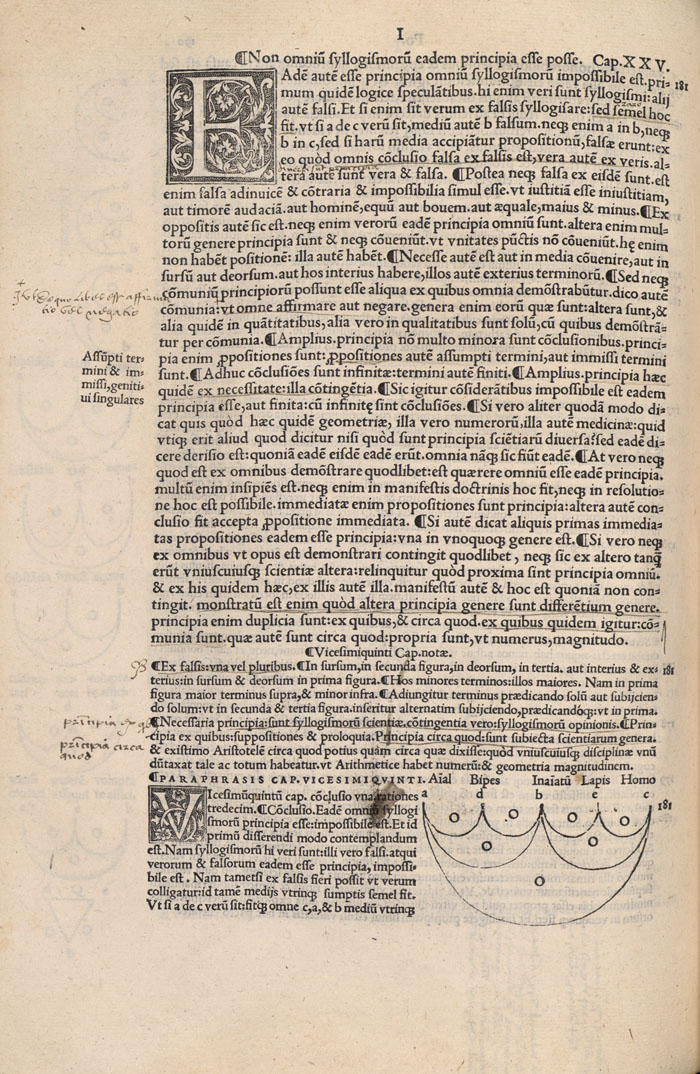 I
¶Non omniũ syllogismorũ eadem principia esse posse. Cap.XXV.
EAdẽ autẽ esse principia omniũ syllogismorũ impossibile est.pri-
181
mum quidẽ logice speculãtibus.hi enim veri sunt syllogismi:alij
autẽ falsi.Et si enim sit verum ex falsis syllogisare:sed semel hoc
fit.vt si a de c verũ sit,mediũ autẽ b falsum.neq; enim a in b,neq;
b in c,sed si harũ media accipiãtur propositionũ,falsæ erunt:ex
eo quòd omnis cõclusio falsa ex falsis est,vera autẽ ex veris.al-
tera autẽ sunt vera & falsa. ¶Postea neq; falsa ex eisdẽ sunt.est
enim falsa adinuicẽ & cõtraria & impossibilia simul esse.vt iustitiã esse iniustitiam,
aut timorẽ audaciã.aut hominẽ,equũ aut bouem.aut æquale,maius & minus.¶Ex
oppositis autẽ sic est.neq; enim verorũ eadẽ principia omniũ sunt.altera enim mul-
torũ genere principia sunt & neq; cõueniũt.vt vnitates pũctis nõ cõueniũt.hę enim
non habẽt positionẽ: illa autẽ habẽt.¶Necesse autẽ est aut in media cõuenire,aut in
sursũ aut deorsum.aut hos interius habere,illos autẽ exterius terminorũ.¶Sed neq;
cõmuniũ principiorũ possunt esse aliqua ex quibus omnia demõstrabũtur.dico autẽ
cõmunia:vt omne affirmare aut negare.genera enim eorũ quæ sunt:altera sunt,&
alia quidẽ in quãtitatibus,alia vero in qualitatibus sunt solũ,cũ quibus demõstrã-
tur per cõmunia.¶Amplius.principia nõ multo minora sunt cõclusionibus.princi-
pia enim ꝓpositiones sunt:ꝓpositiones autẽ assumpti termini,aut immissi termini
sunt.¶Adhuc cõclusiões sunt infinitæ:termini autẽ finiti.¶Amplius.principia hæc
quidẽ ex necessitate:illa cõtingẽtia.¶Sic igitur cõsiderãtibus impossibile est eadem
principia esse,aut finita:cũ infinitę sint cõclusiões.¶Si vero aliter quodã modo di-
cat quis quòd hæc quidẽ geometriæ, illa vero numerorũ,illa autẽ medicinæ:quid
vtiq; erit aliud quod dicitur nisi quòd sunt principia sciẽtiarũ diuersa?sed eadẽ di-
cere derisio est:quoniã eadẽ eisdẽ eadẽ erũt.omnia nãq; sic fiũt eadẽ.¶At vero neq;
quod est ex omnibus demõstrare quodlibet:est quærere omniũ esse eadẽ principia.
multũ enim insipiẽs est.neq; enim in manifestis doctrinis hoc fit,neq; in resolutio-
ne hoc est possibile.immediatæ enim propositiones sunt principia:altera autẽ con-
clusio fit accepta ꝓpositione immediata. ¶Si autẽ dicat aliquis primas immedia-
tas propositiones eadem esse principia:vna in vnoquoq; genere est.¶Si vero neq;
ex omnibus vt opus est demonstrari contingit quodlibet , neq; sic ex altero tanq̃
erũt vniuscuiusq; scientiæ altera:relinquitur quòd proxima sint principia omniũ.
& ex his quidem hæc,ex illis autẽ illa.manifestũ autẽ & hoc est quoniã non con-
tingit. monstratũ est enim quòd altera principia genere sunt differẽtium genere.
principia enim duplicia sunt:ex quibus,& circa quod.ex quibus quidem igitur:cõ-
munia sunt.quæ autẽ sunt circa quod:propria sunt,vt numerus,magnitudo.
de quo libet esse affirma
tio vel negatio
Assũpti ter-
mini & im-
missi,geniti-
ui singulares
¶Vicesimiquinti Cap.notæ.
¶Ex falsis:vna vel pluribus.¶In sursum,in secunda figura,in deorsum, in tertia. aut interius & ex-
181
terius:in sursum & deorsum in prima figura.¶Hos minores terminos:illos maiores. Nam in prima
figura maior terminus supra,& minor infra.¶Adiungitur terminus prædicando solũ aut subijcien-
do solum:vt in secunda & tertia figura.inseritur alternatim subijciendo,prædicandóq;:vt in prima.
¶Necessaria principia:sunt syllogismorũ scientiæ.cõtingentia vero:syllogismorũ opinionis.¶Prin-
cipia ex quibus:suppositiones & proloquia.Principia circa quod:sunt subiecta scientiarum genera.
& existimo Aristotelẽ circa quod potius quam circa quæ dixisse:quòd vniuscuiusq; disciplinæ vnũ
dũtaxat tale ac totum habeatur.vt Arithmetice habet numerũ:& geometria magnitudinem.
principia ex q̃
principia circa
quod
¶PARAPHRASIS CAP. VICESIMIQVINTI.
VIcesimũquintũ cap. cõclusio vna,rationes
tredecim.¶Cõclusio. Eadẽ omniũ syllogi
smorũ principia esse:impossibile est.Et id
primũ disserendi modo contemplandum
est.Nam syllogismorũ hi veri sunt:illi vero falsi.atqui
verorum & falsorum eadem esse principia, impossi-
bile est. Nam tametsi ex falsis fieri possit vt verum
colligatur:id tamẽ medijs vtrinq; sumptis semel fit.
Vt si a de c verũ sit:fitq; omne c,a,& b mediũ vtrinq;
Aĩal Bipes Inaĩatũ Lapis Homo
a d b e c
181
O O O O
O O
O